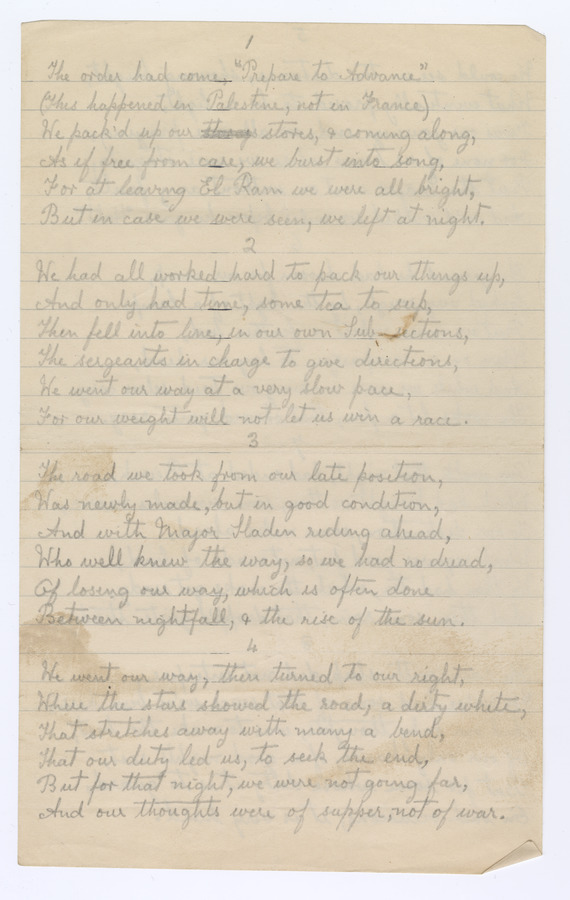 1
The order had come, "Prepare to Advance"
(This happened in Palestine, not in France)
We pack'd up our stores, & coming along,
As if free from care, we burst into song,
For at leaving El Ram we were all bright,
But in case we were seen, we left at night.
2
We had all worked hard to pack our things up,
And only had time, some tea to sup,
Then fell into line, in our own Sub-sections,
The sergeants in charge to give directions,
We went our way at a very slow pace,
For our weight will not let us win a race.
3
The road we took from our late position,
Was newly made, but in good condition,
And with Major Sladen riding ahead,
Who well knew the way, so we had no dread,
Of losing our way, which is often done
Between nightfall, & the rise of the sun.
4
We went our way, then turned to our right,
Where the stars showed the road, a dirty white,
That stretches away with many a bend,
That our duty led us, to seek the end,
But for that night, we were not going far,
And our thoughts were of supper, not of war.